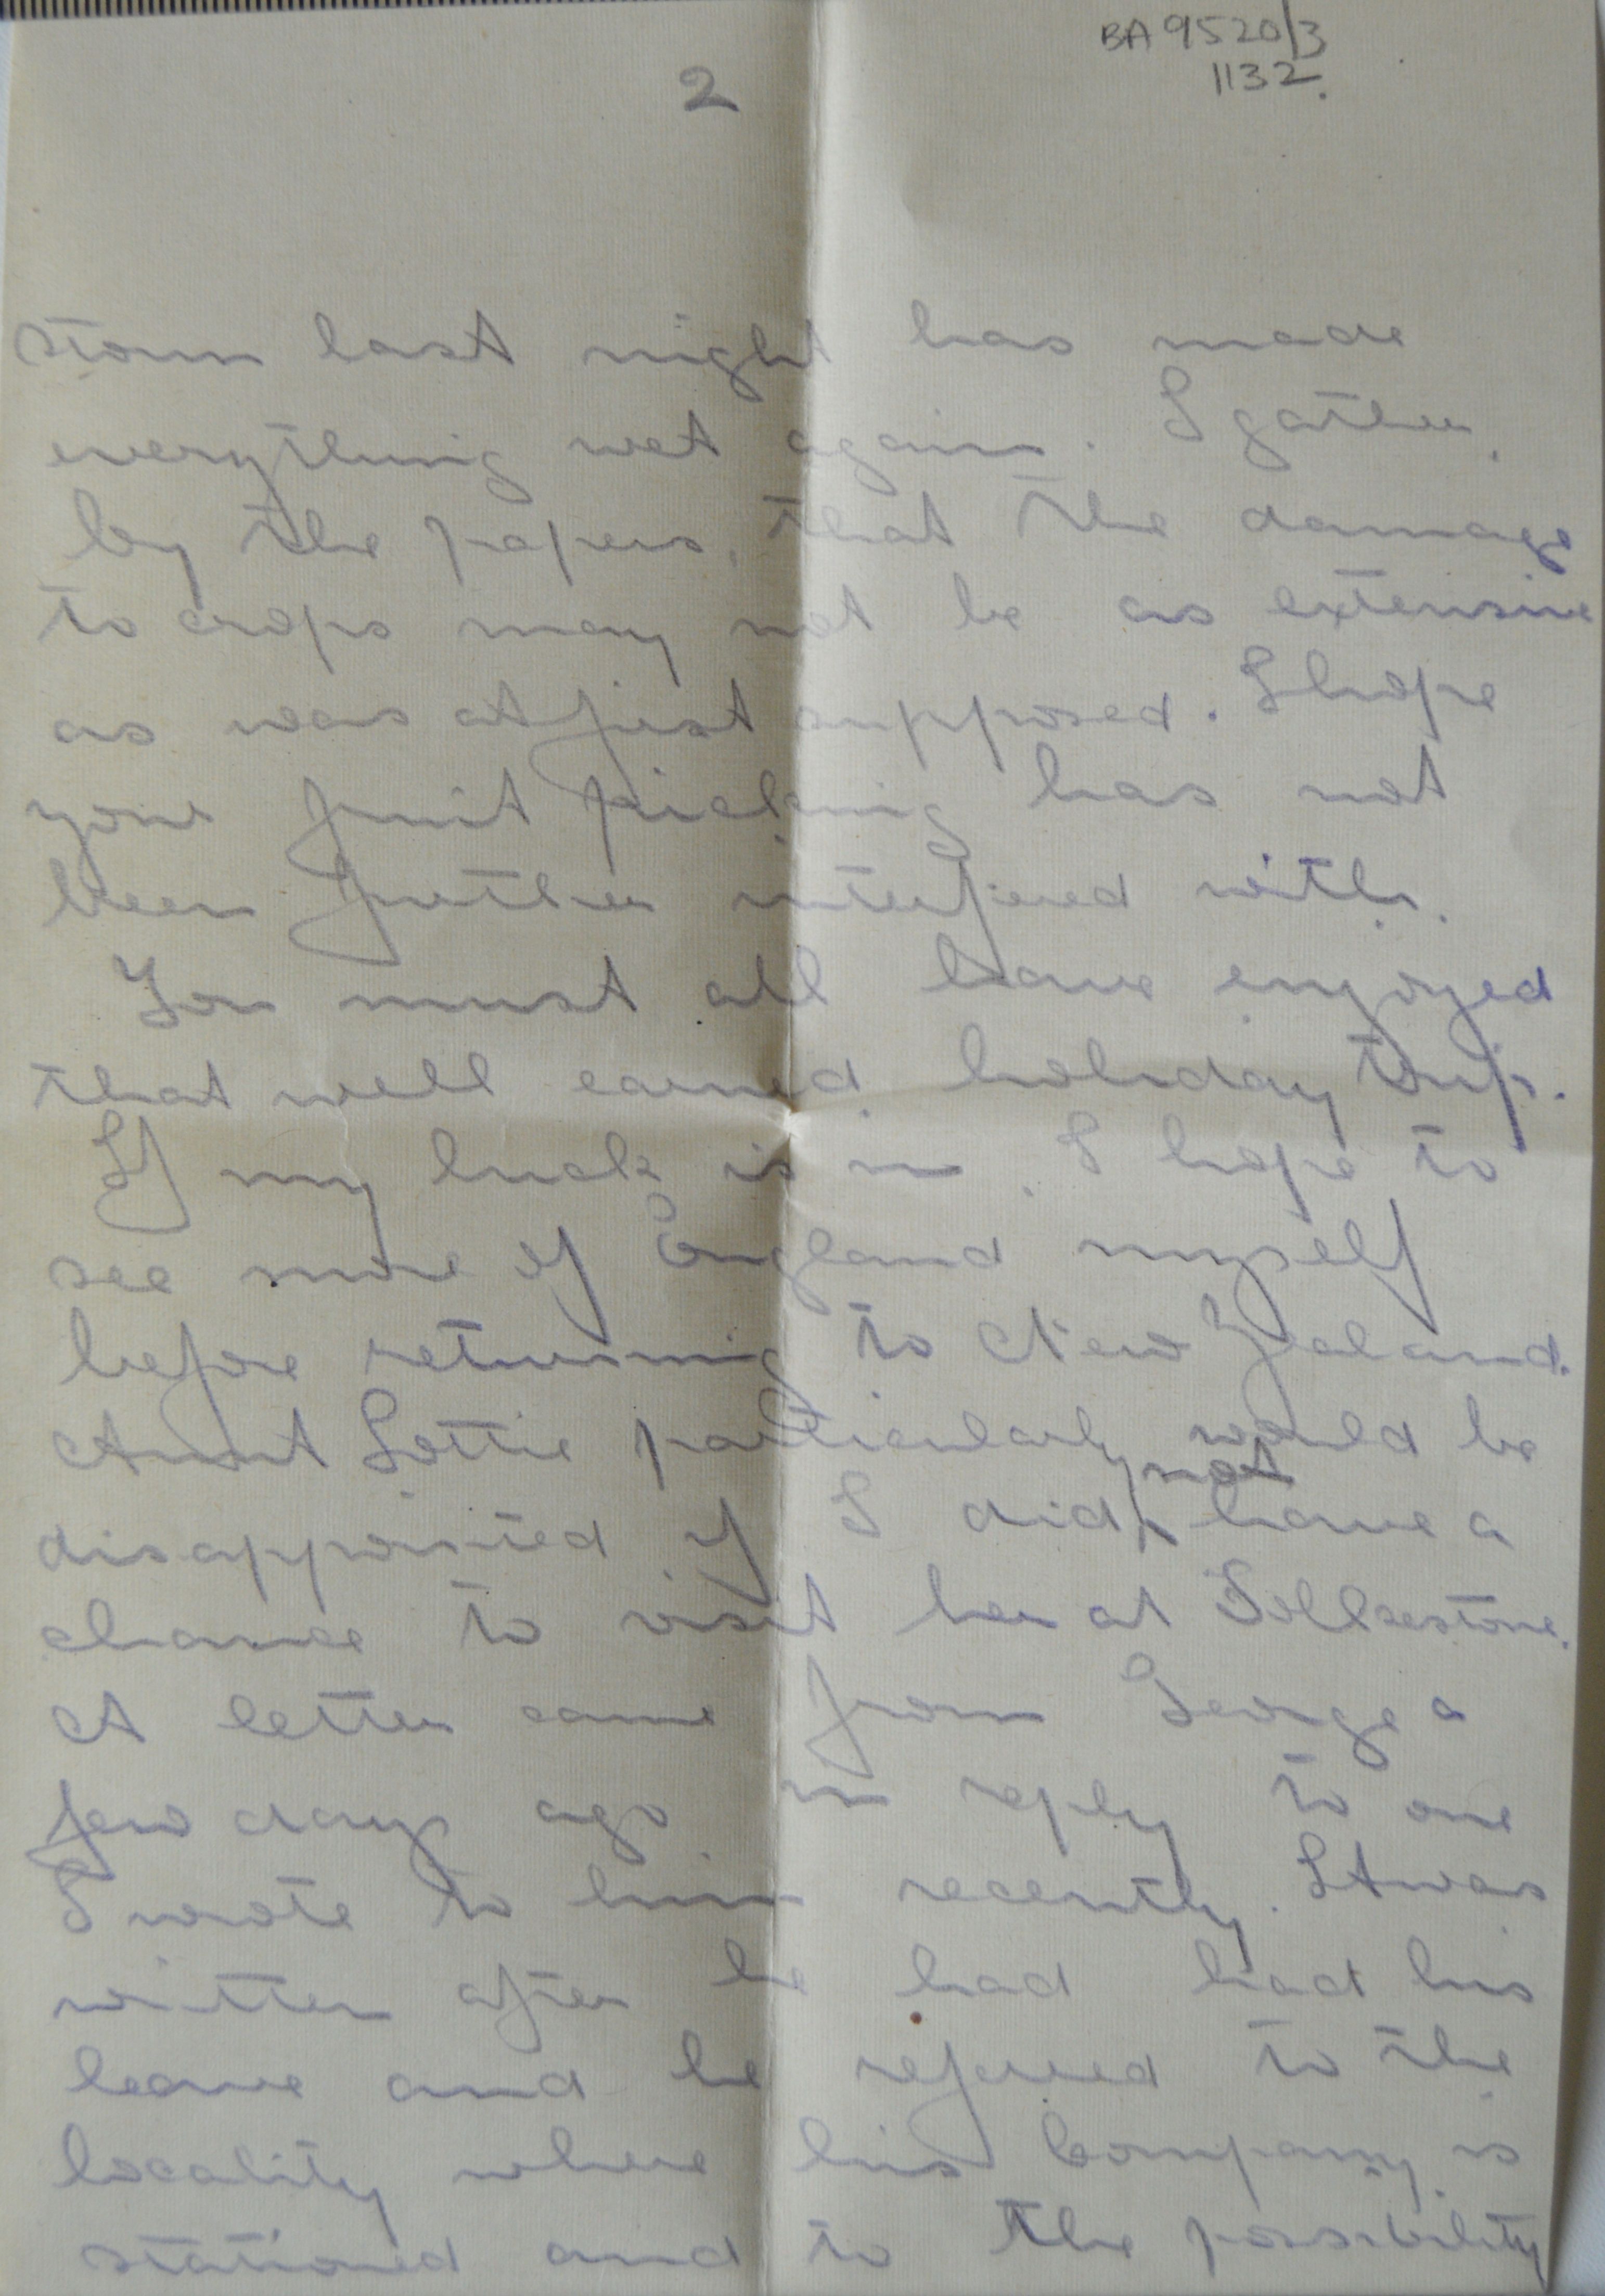 BA 9520/3
1132.
2
storm last night has made
everything wet again. I gather,
by the papers, that the damage
to crops may not be as extensive
as was at first supposed. I hope
your fruit picking has not
been further interfered with.
You must all have enjoyed
that well earned holiday trip.
If my luck is in, I hope to
see more of England myself
before returning to New Zealand.
Aunt Lottie particularly would be
not
disappointed if I did have a
chance to visit her at Folkestone.
A letter came from George a
few days ago in reply to one
I wrote to him recently. It was
written after he had had his
leave and he referred to the
locality where his Company is
stationed and to the possibility